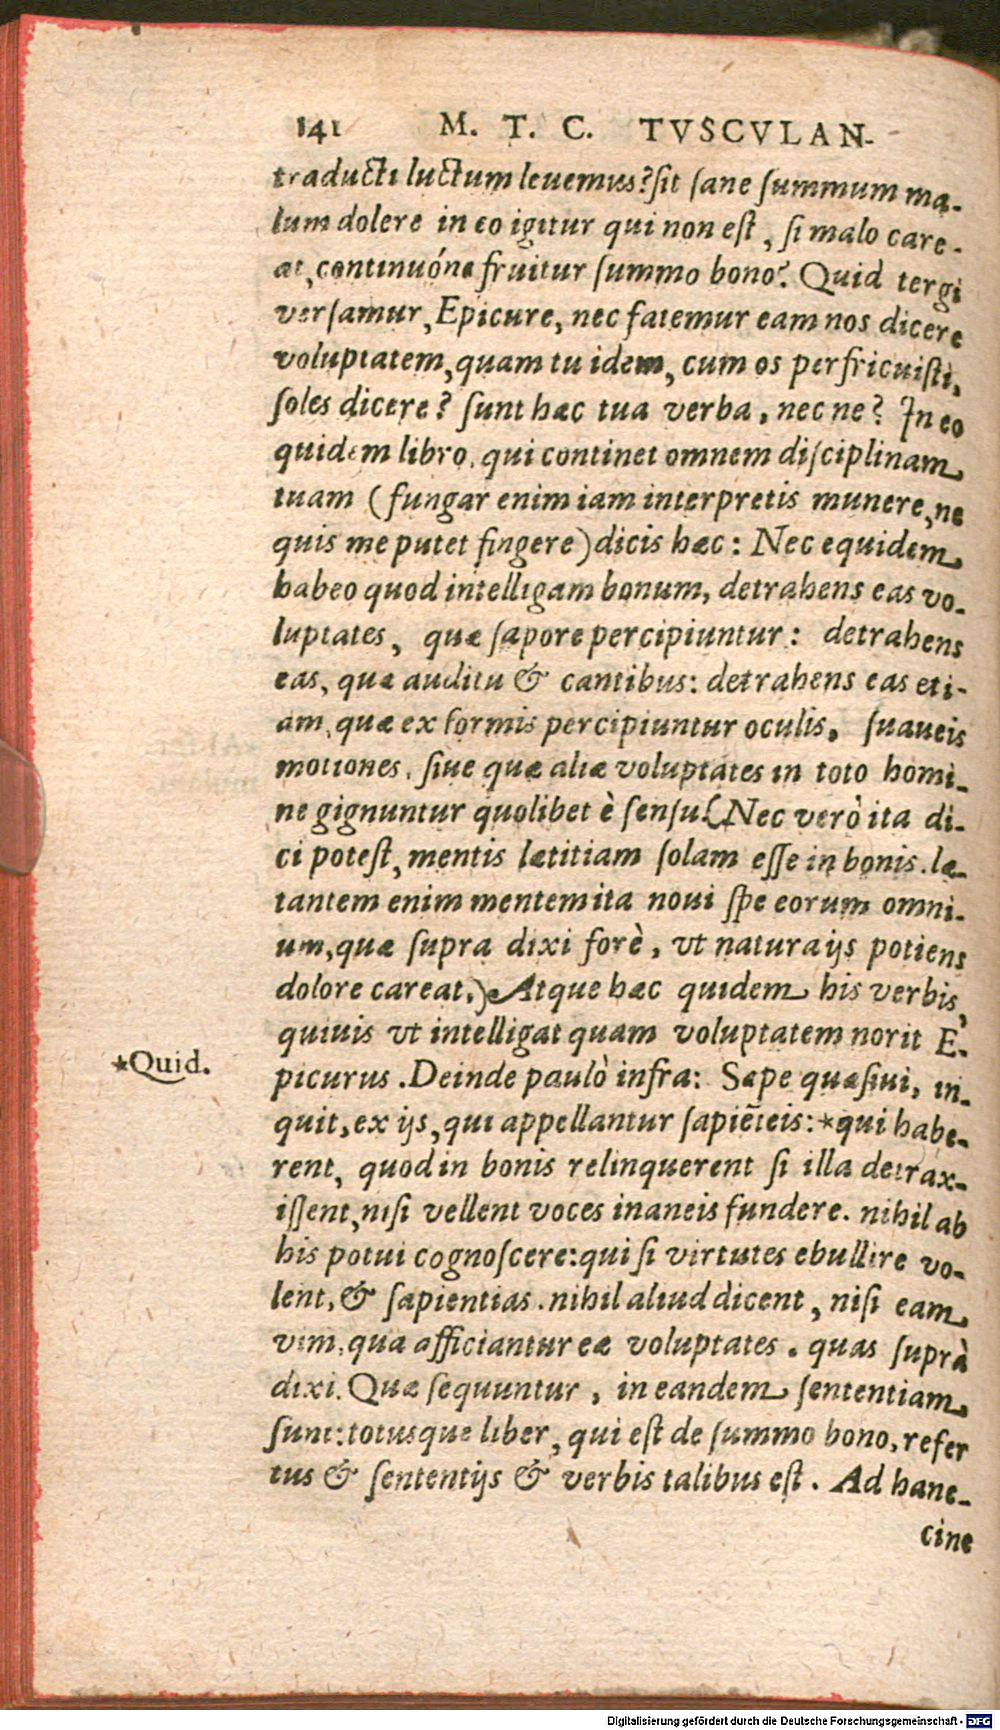 141 M. T. C. TVSCVLAN-
traducti luctum leuemus? sit sane summum ma-
lum dolere in eo igitur qui non est, si malo care-
at, continuóne fruitur summo bono? Quid tergi
versamur, Epicure, nec fatemur eam nos dicere
voluptatem, quam tu idem, cum os perfricuisti,
soles dicere? sunt hæc tua verba, nec ne? In eo
quidem libro, qui continet omnem disciplinam
tuam (fungar enim iam interpretis munere, ne
quis me putet fingere) dicis hæc: Nec equidem
habeo quod intelligam bonum, detrahens eas vo-
luptates, quæ sapore percipiuntur: detrahens
eas, quæ auditu & cantibus: detrahens eas eti-
am, quæ ex formis percipiuntur oculis, suaueis
motiones, siue quæ aliæ voluptates in toto homi-
ne gignuntur quolibet è sensu. (Nec verò ita di-
ci potest, mentis lætitiam solam esse in bonis. læ-
tantem enim mentem ita noui spe eorum omni-
um, quæ supra dixi forè, vt natura ijs potiens
dolore careat.) Atque hæc quidem his verbis,
quiuis vt intelligat quam voluptatem norit E-
*Quid.
picurus. Deinde paulò infra: Sæpe quæsiui, in-
quit, ex ijs, qui appellantur sapiẽteis: *qui habe-
rent, quod in bonis relinquerent si illa detrax-
issent, nisi vellent voces inaneis fundere. nihil ab
his potui cognoscere: qui si virtutes ebullire vo-
lent, & sapientias. nihil aliud dicent, nisi eam
vim, qua afficiantur eæ voluptates. quas suprà
dixi. Quæ sequuntur, in eandem sententiam
sunt: totusque liber, qui est de summo bono, refer
tus & sententijs & verbis talibus est. Ad hanc-
cine
Digitalisierung gefördert durch die Deutsche Forschungsgemeinschaft - DFG